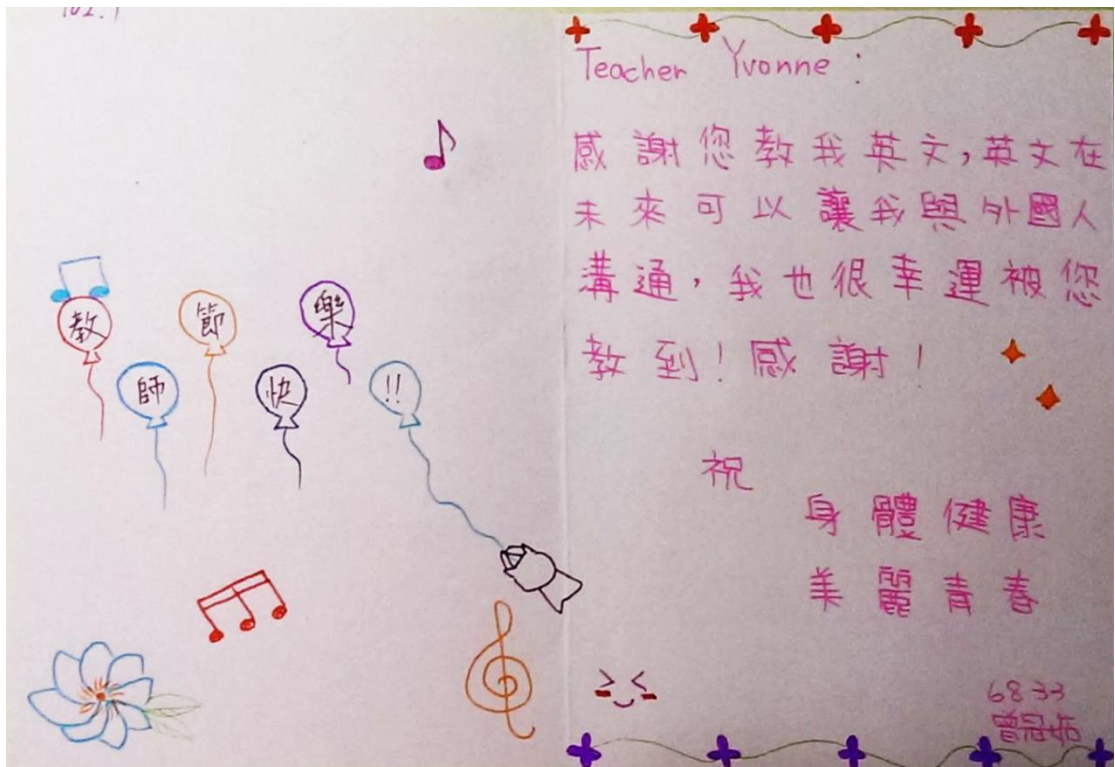 教師節快樂!!
Teacher Yvonne:
感謝您教我英文,英文在
未來可以讓我與外國人
溝通,我也很幸運被您
教到!感謝!
祝
身體健康
美麗青春
6833